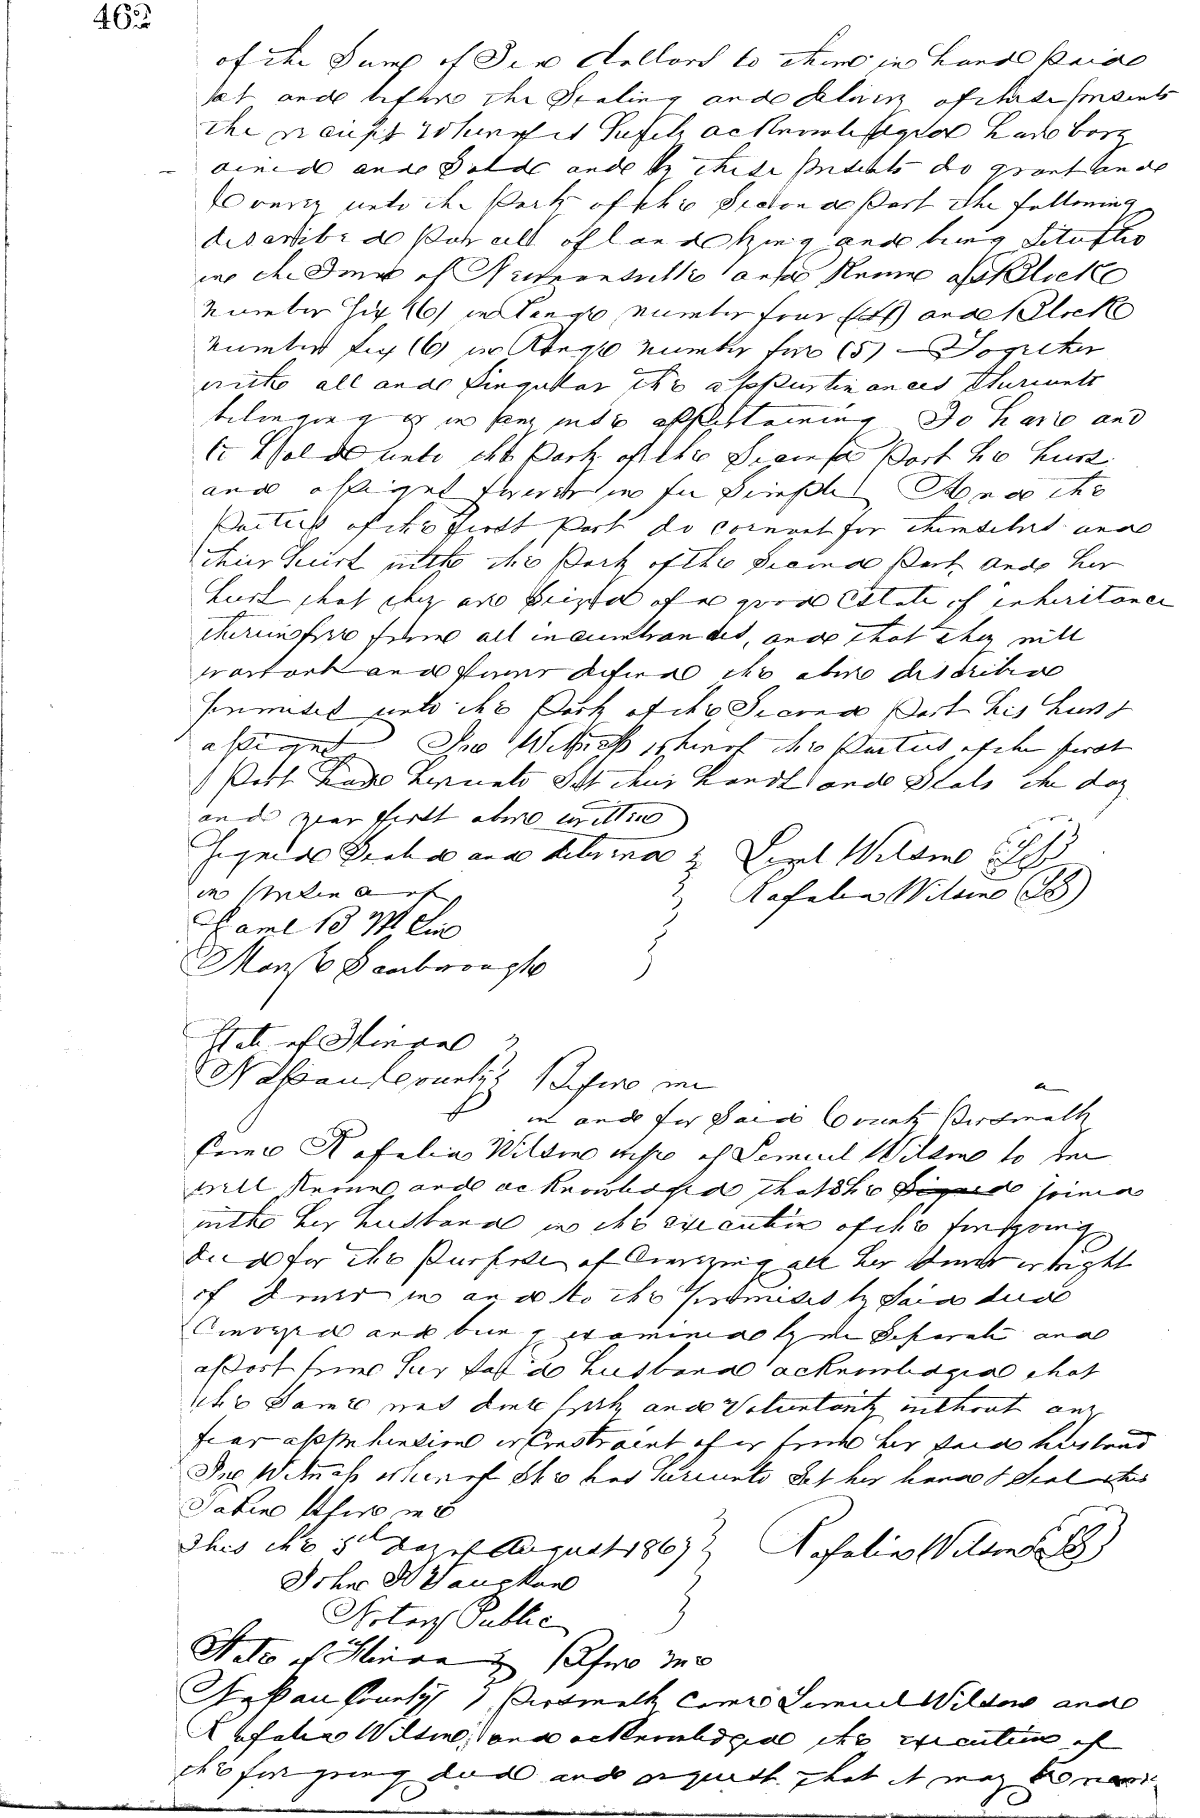 462
of the Sum of Ten dollars to them in hand paid
at and before the Sealing and delivery of these presents
the receipt whereof is hereby acknowledged have barg
ained and Sold and by these presents do grant and
Convey unto the party of the Second part the following
described parcels of land lying and being Situate
in the Town of Fernandina and Known as Block
Number Six (6) in Range number four (4) and Block
Number Six (6) in Range number five (5) Together
with all and Singular the appurtinances thereunto
belonging or in any wise appertaining To have and
to Hold unto the party of the Second part his heirs
and assigns forever in fee Simple And the
Parties of the first part do covenant for themselves and
their heirs with the party of the Second part and her
heirs that they are Seized of a good Estate of inheritance
therein free from all incumbrances, and that they will
warrant and forever defend the above described
premises unto the party of the Second part his heirs &
assigns In Witness whereof the Parties of the first
part have hereunto Set their hands and Seals the day
and year first above written
Signed Sealed and delivered Leml Wilson (LS)
in presence of Rafalia Wilson (LS)
Saml B
Scarborough
State of Florida
Nassau County Before me a
in and for said County personally
Came Rafalia Wilson wife of Lemuel Wilson to me
well Known and acknowledged that She joined
with her husband in the execution of the foregoing
deed for the purpose of Conveying all her dower or right
of dower in and to the premises by Said deed
Conveyed and being examined by me Separate and
apart from her Said husband acknowledged that
the Same was done freely and Voluntarily without any
fear apprehension or Constraint of or from her said husband
In Witness whereof She has hereunto Set her hand & Seal this
Taken before me
This the 5th day of August 1867 Rafalia Wilson (LS)
John
Notary Public
State of Florida Before me
Nassau County personally came Lemuel Wilson and
Rafalia Wilson, and acknowledged the execution of
the foregoing deed and request that it may be